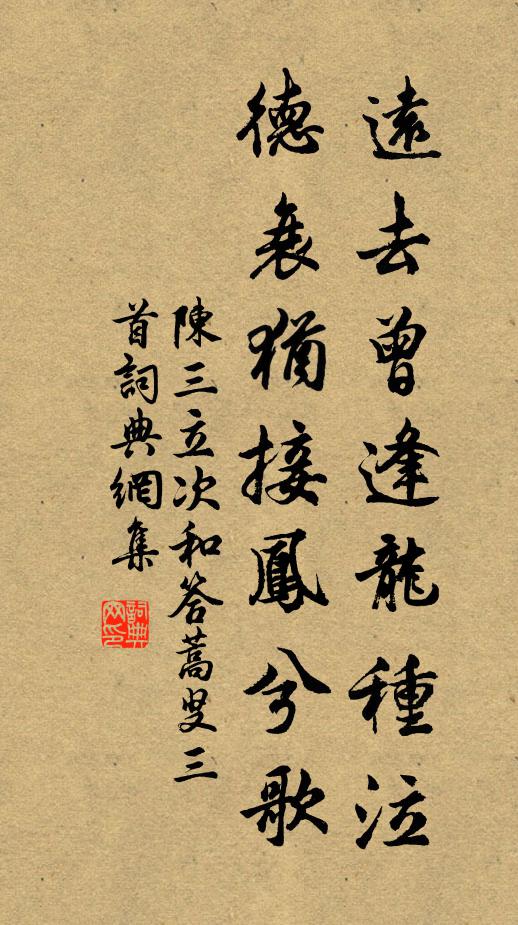 遠去曾逢龍種泣
德衰猶接鳳兮歌
陳三立次和答蒿叟三
首詞典網集
詞典網印